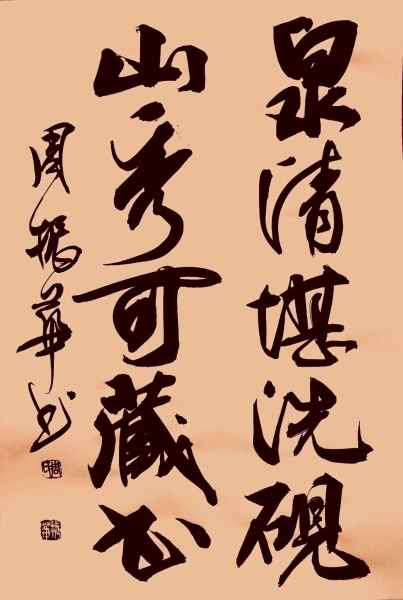 泉清堪洗砚
山秀可藏书
周楊华书